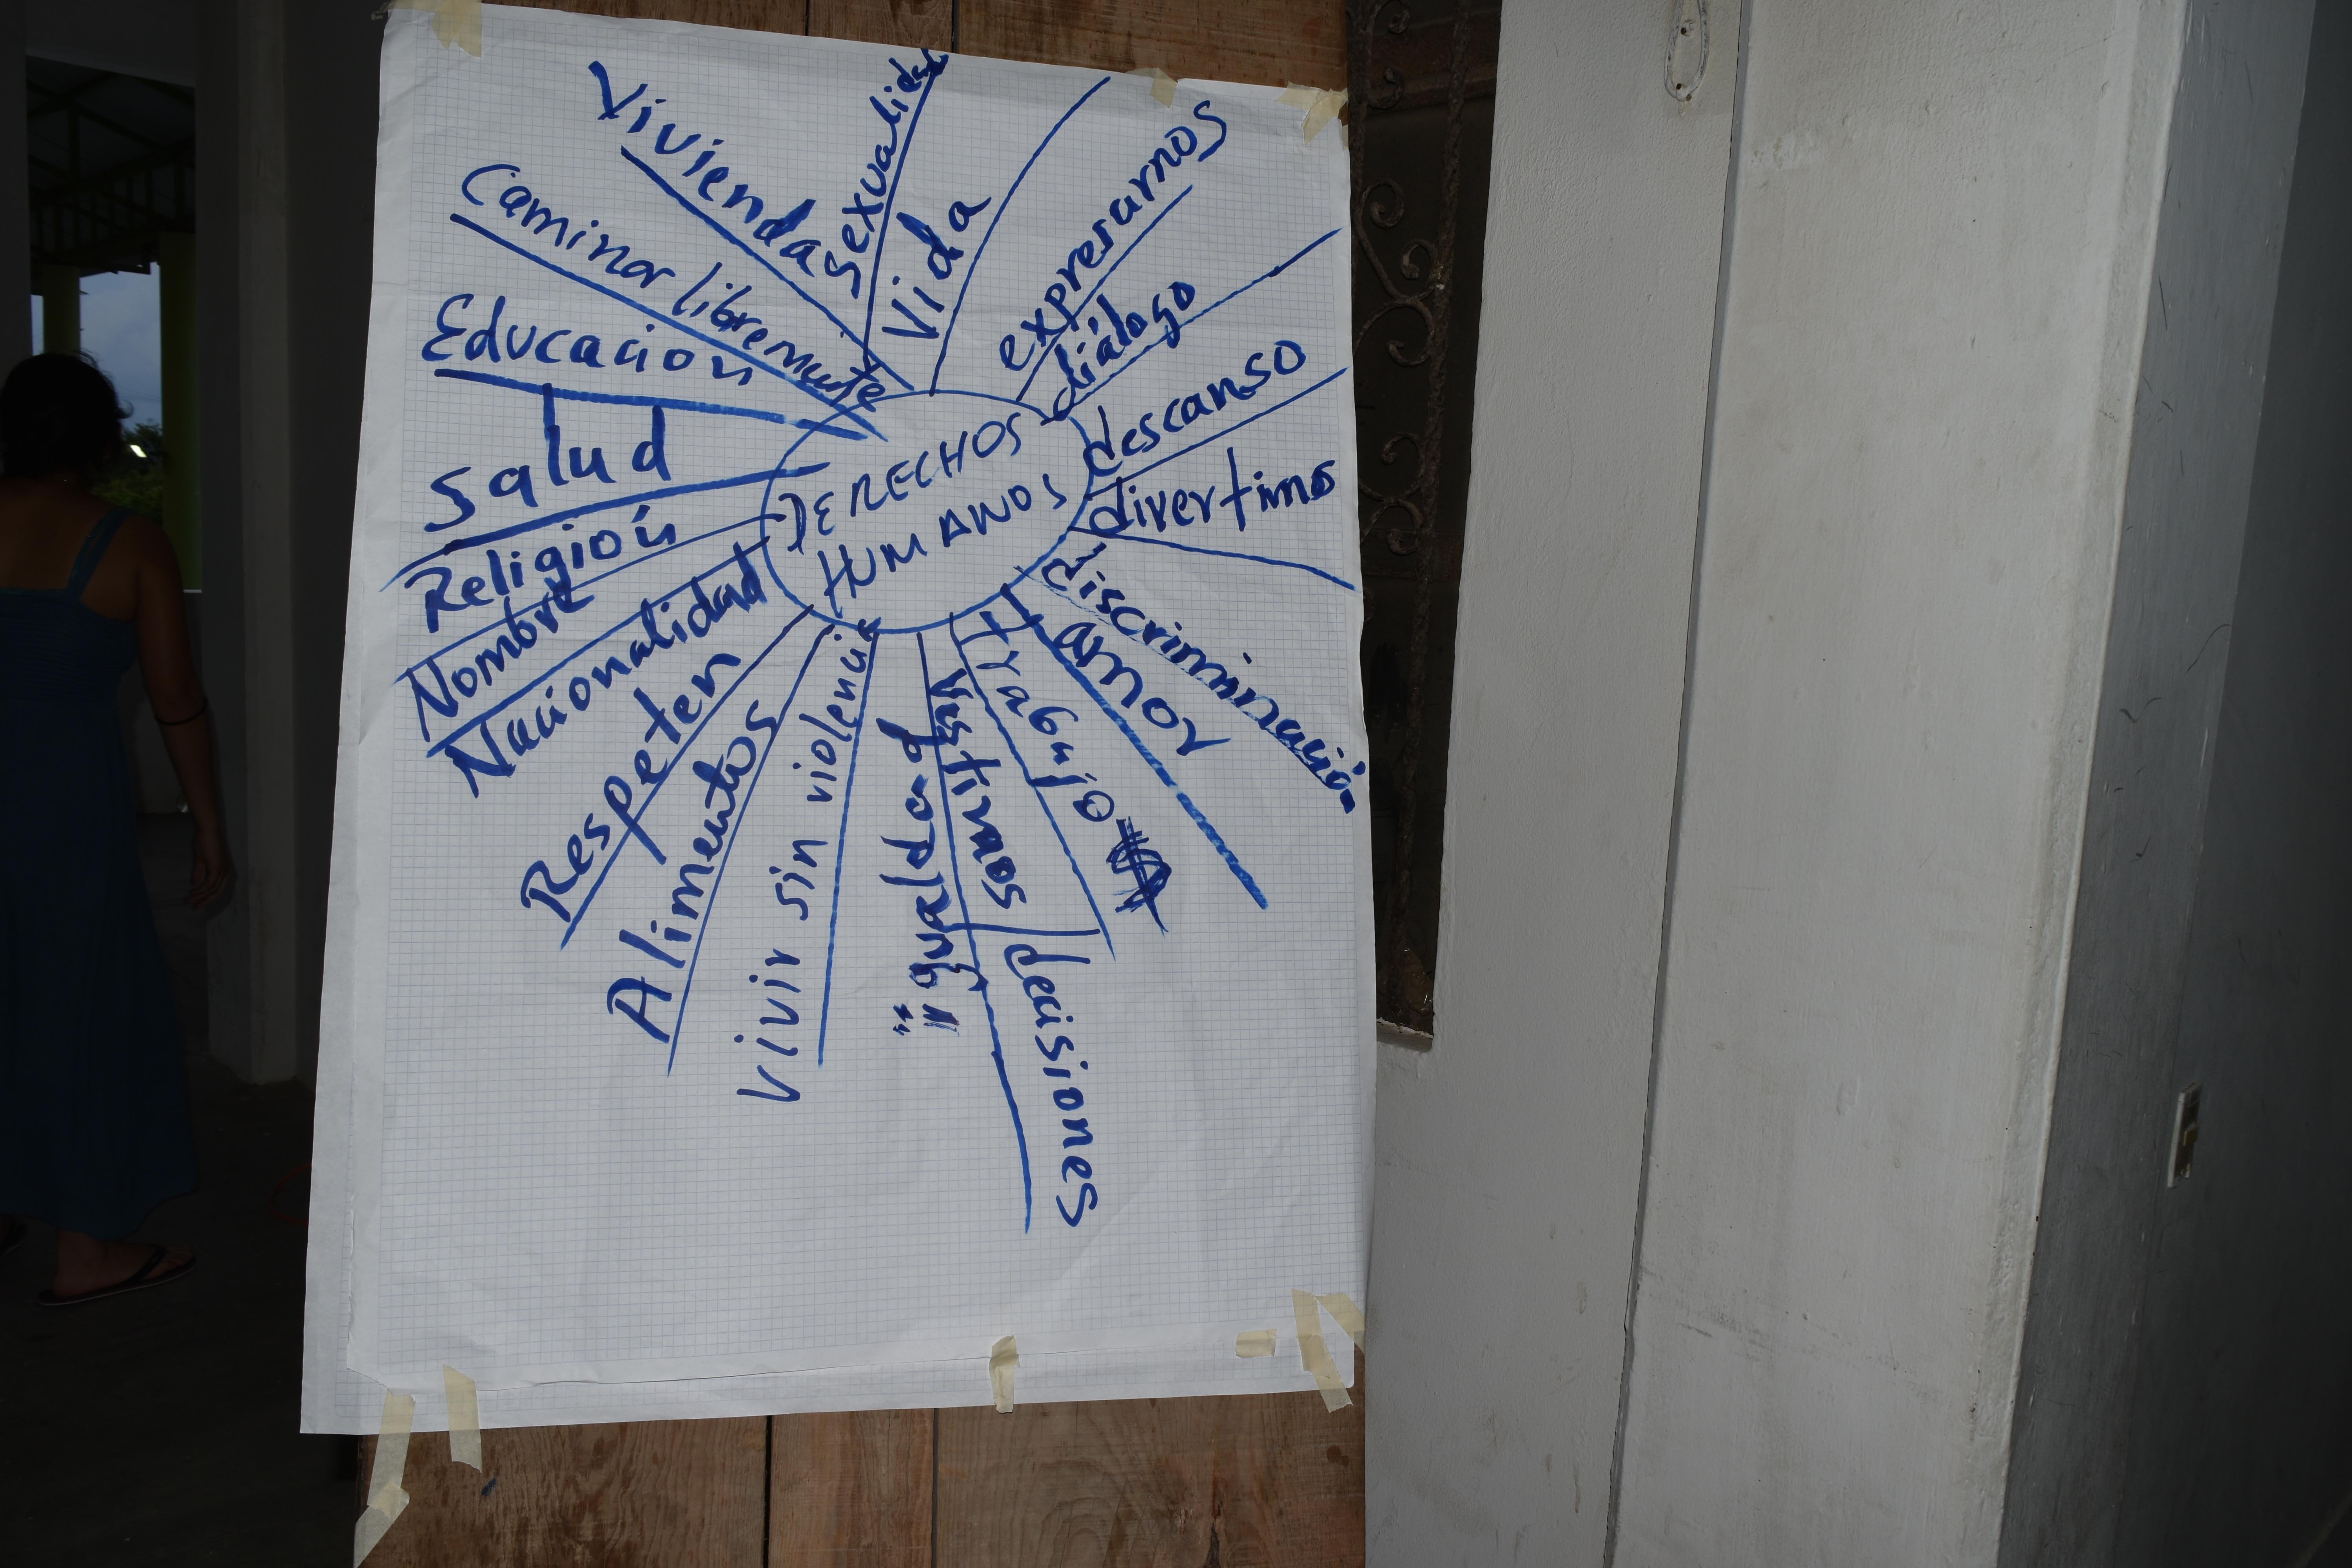 DERECHOS
HUMANOS
Vida
expresarnos
diálogo
descanso
divertirnos
discriminación
amor
trabajo $
vestirnos / decisiones
"igualdad"
vivir sin violencia
Alimentos
Respeten
Nacionalidad
Nombre
Religión
Salud
Educación
Caminar libremente
Vivienda
sexualidad